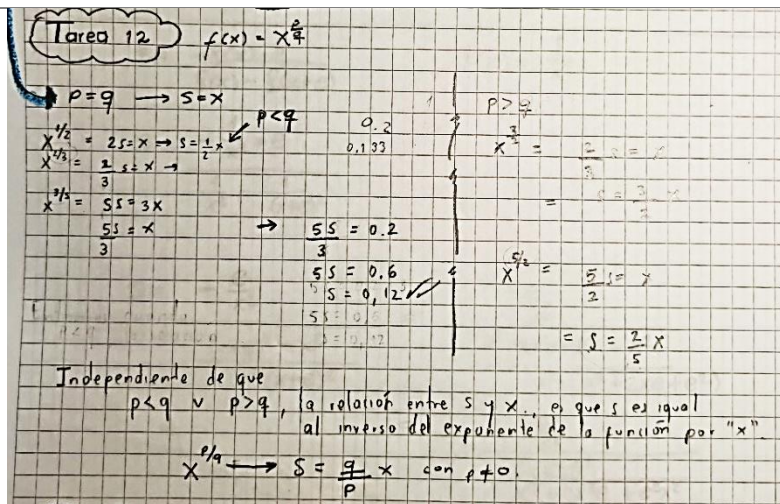 Tarea 12 f(x) = x^(p/q)
p = q → s = x
p < q
x^(1/2) = 2s = x → s = 1/2 x
x^(2/3) = 2/3 s = x →
x^(3/5) = 5s = 3x
5s/3 = x
0.2
0,133
→ 5s/3 = 0.2
5s = 0.6
s = 0,12
p > q
= 2/3 s = x
= s = 3/2 x
x^(5/2) = 5/2 s = x
= s = 2/5 x
Independiente de que
p<q v p>q, la relación entre s y x, es que s es igual
al inverso del exponente de la función por "x".
x^(p/q) → s = q/p x con p≠0.